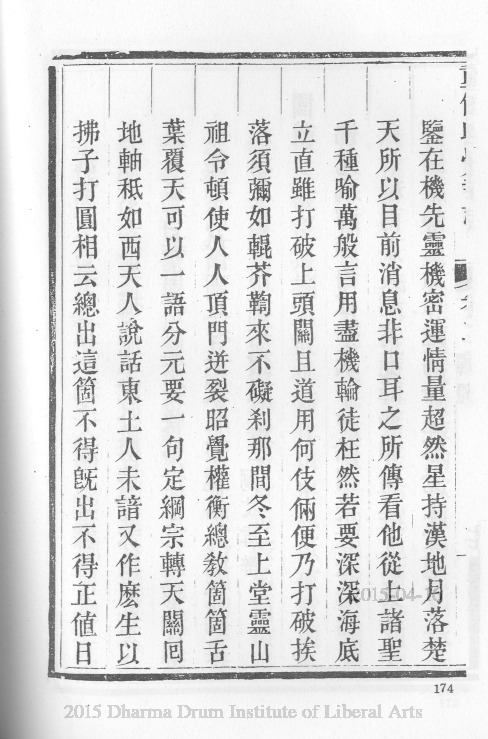 鑒在機先靈機密運情量超然星持漢地月落楚
天所以目前消息非口耳之所傳看他從上諸聖
千種喻萬般言用盡機輪徒枉然若要深深海底
立直雖打破上頭關且道用何伎倆便乃打破挨
落須彌如輥芥鞫來不礙剎那間冬至上堂靈山
祖令頓使人人頂門迸裂昭覺權衡總教箇箇舌
葉覆天可以一語分元要一句定綱宗轉天關回
地軸秪如西天人說話東土人未諳又作麽生以
拂子打圓相云總出這箇不得旣出不得正値日
174
2015-04-
2015 Dharma Drum Institute of Liberal Arts